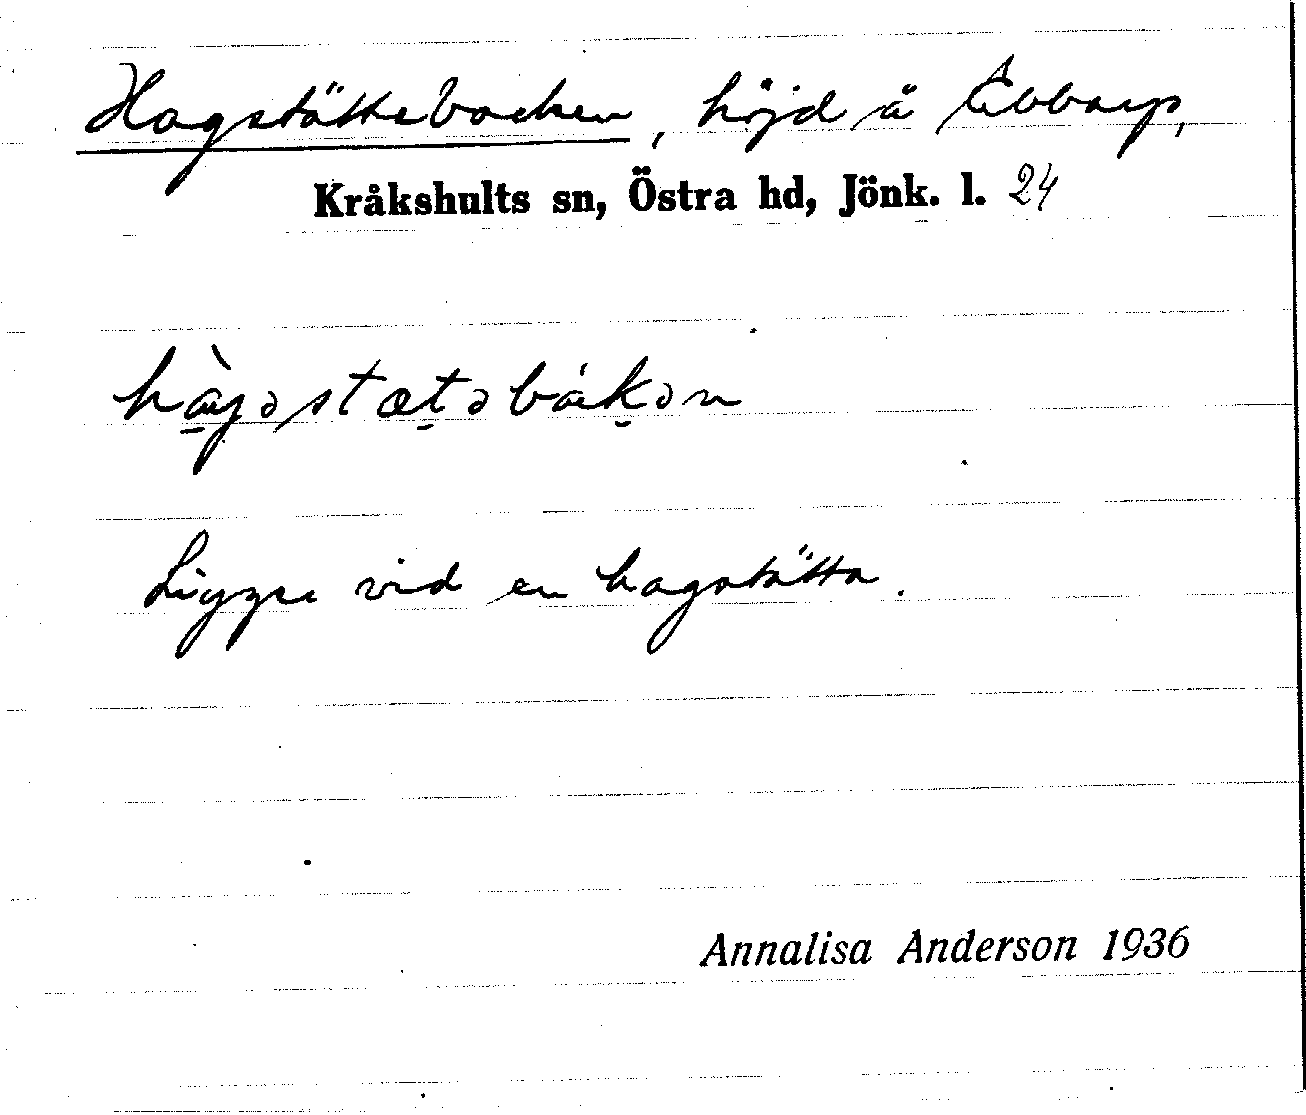 Hagstättebacken, höjd å Ebbarp,
Kråkshults sn, Östra hd, Jönk. l. 24
hàgəstætəbákən
Ligger vid en hagstätta.
Annalisa Anderson 1936